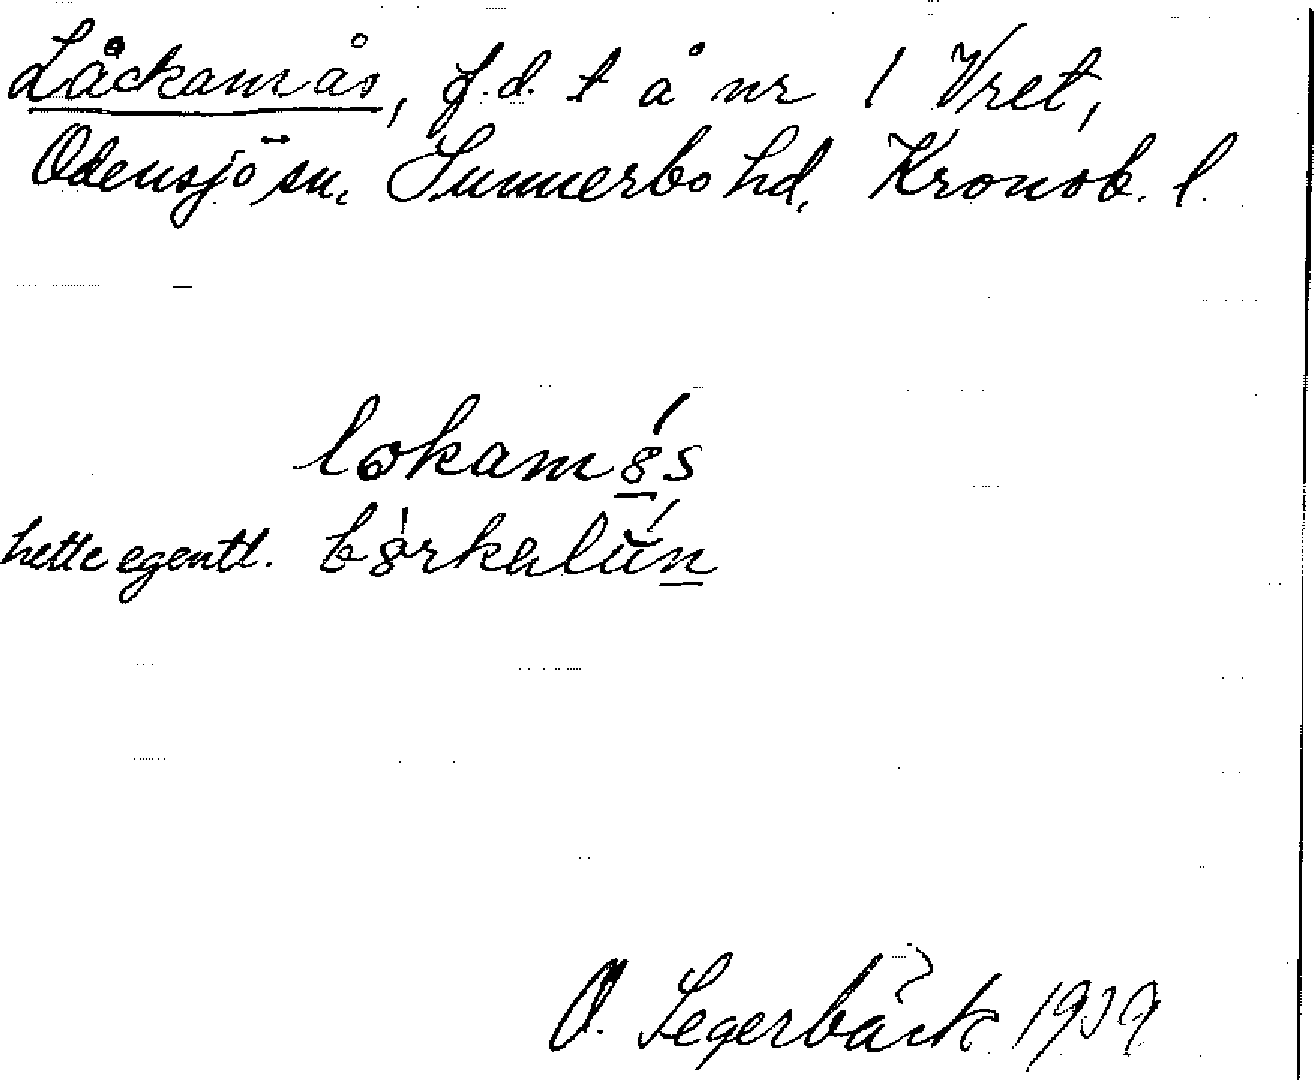 Låckamås, f.d. t å nr 1 Vret,
Odensjö sn. Sunnerbo hd, Kronob. l.
lokam8́s
hette egentl. b8́rkalún
O. Segerbäck 1939